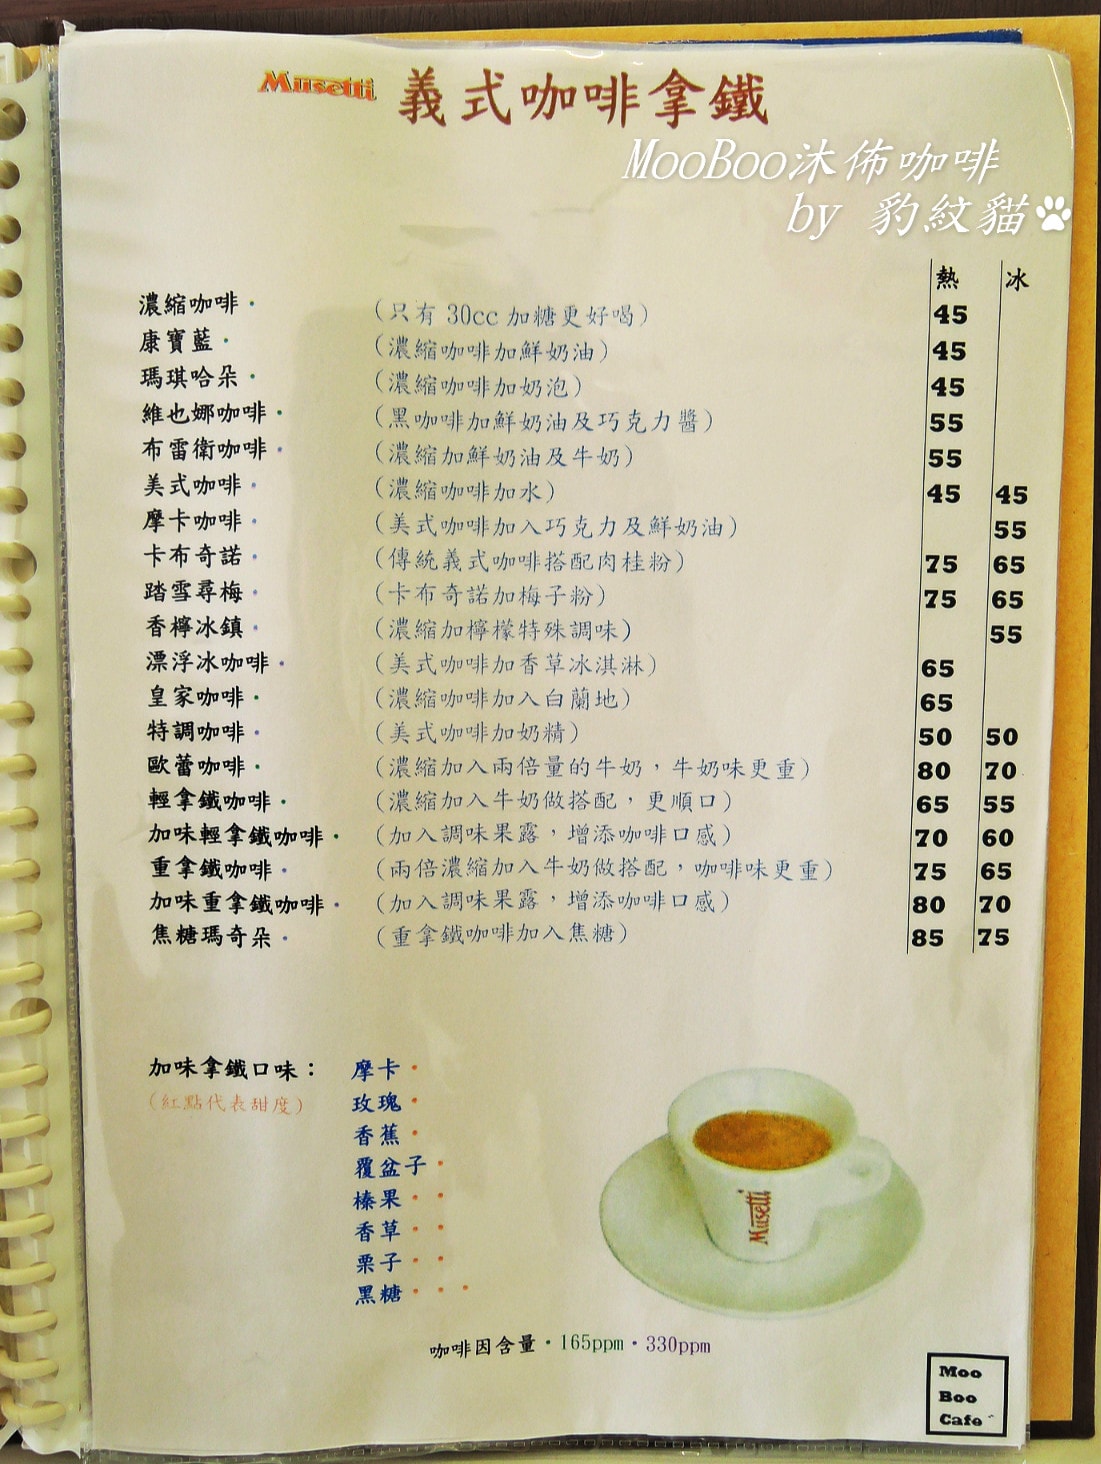 Musetti 義式咖啡拿鐵
MooBoo沐佈咖啡
by 豹紋貓
熱 冰
濃縮咖啡・ (只有 30cc 加糖更好喝) 45
康寶藍・ (濃縮咖啡加鮮奶油) 45
瑪琪哈朵・ (濃縮咖啡加奶泡) 45
維也娜咖啡・ (黑咖啡加鮮奶油及巧克力醬) 55
布雷衛咖啡・ (濃縮加鮮奶油及牛奶) 55
美式咖啡・ (濃縮咖啡加水) 45 45
摩卡咖啡・ (美式咖啡加入巧克力及鮮奶油) 55
卡布奇諾・ (傳統義式咖啡搭配肉桂粉) 75 65
踏雪尋梅・ (卡布奇諾加梅子粉) 75 65
香檸冰鎮・ (濃縮加檸檬特殊調味) 55
漂浮冰咖啡・ (美式咖啡加香草冰淇淋) 65
皇家咖啡・ (濃縮咖啡加入白蘭地) 65
特調咖啡・ (美式咖啡加奶精) 50 50
歐蕾咖啡・ (濃縮加入兩倍量的牛奶，牛奶味更重) 80 70
輕拿鐵咖啡・ (濃縮加入牛奶做搭配，更順口) 65 55
加味輕拿鐵咖啡・ (加入調味果露，增添咖啡口感) 70 60
重拿鐵咖啡・ (兩倍濃縮加入牛奶做搭配，咖啡味更重) 75 65
加味重拿鐵咖啡・ (加入調味果露，增添咖啡口感) 80 70
焦糖瑪奇朵・ (重拿鐵咖啡加入焦糖) 85 75
加味拿鐵口味： 摩卡・
(紅點代表甜度) 玫瑰・
香蕉・
覆盆子・
榛果・・
香草・・
栗子・・
黑糖・・・
Musetti
咖啡因含量・165ppm・330ppm
Moo
Boo
Cafe